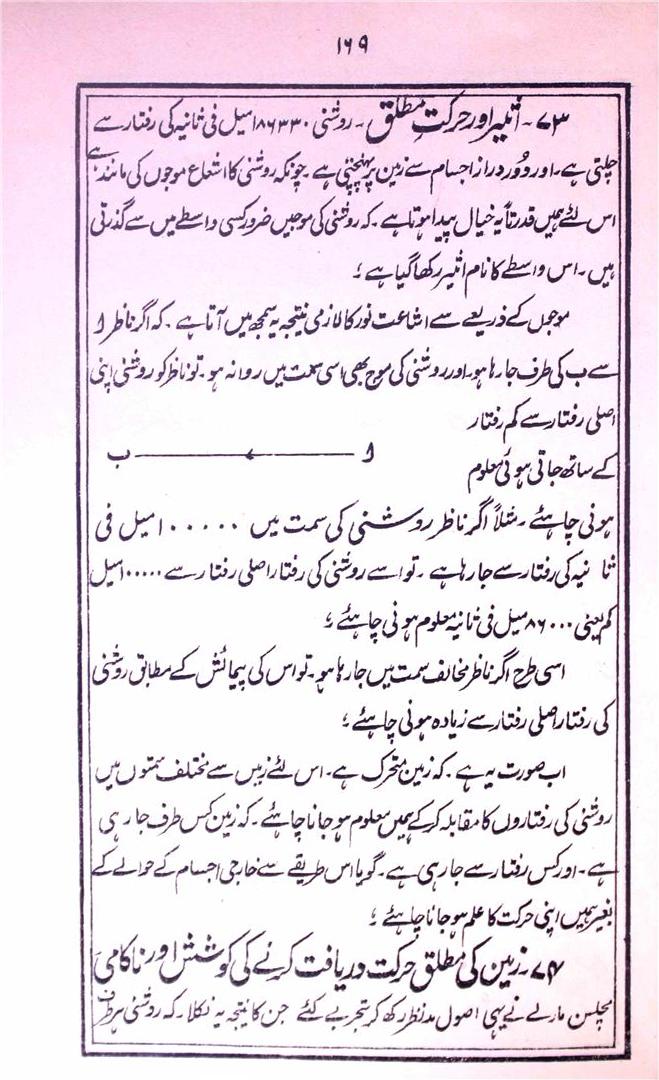 ۱۶۹
۷۳۔ اتیھر اور حرکت مطلق۔ روشنی ۱۸۶۳۳۰ میل فی ثانیہ کی رفتار سے
چلتی ہے۔ اور دُور دراز اجسام سے زمین پر پہنچتی ہے۔ چونکہ روشنی کا اشعاع موجوں کی مانند ہے
اس لئے ہمیں قدرتاً یہ خیال پیدا ہوتا ہے۔ کہ روشنی کی موجیں ضرور کسی واسطے میں سے گذرتی
ہیں۔ اس واسطے کا نام اتیھر رکھا گیا ہے ؛
موجوں کے ذریعے سے اشاعت نور کا لازمی نتیجہ یہ سمجھ میں آتا ہے۔ کہ اگر ناظر ا
سے ب کی طرف جا رہا ہو۔ اور روشنی کی موج بھی اسی سمت میں روانہ ہو۔ تو ناظر کو روشنی اپنی
اصلی رفتار سے کم رفتار
ا ب
کے ساتھ جاتی ہوئی معلوم
ہونی چاہئے۔ مثلاً اگر ناظر روشنی کی سمت میں ۱۰۰۰۰۰ میل فی
ثانیہ کی رفتار سے جا رہا ہے۔ تو اسے روشنی کی رفتار اصلی رفتار سے ۱۰۰۰۰۰ میل
کم یعنی ۸۶۰۰۰ میل فی ثانیہ معلوم ہونی چاہئے ؛
اسی طرح اگر ناظر مخالف سمت میں جا رہا ہو۔ تو اس کی پیمائش کے مطابق روشنی
کی رفتار اصلی رفتار سے زیادہ ہونی چاہئے ؛
اب صورت یہ ہے۔ کہ زمین متحرک ہے۔ اس لئے زمیں سے مختلف سمتوں میں
روشنی کی رفتاروں کا مقابلہ کر کے ہمیں معلوم ہو جانا چاہئے۔ کہ زمین کس طرف جا رہی
ہے۔ اور کس رفتار سے جا رہی ہے۔ گویا اس طریقے سے خارجی اجسام کے حوالے کے
بغیر ہمیں اپنی حرکت کا علم ہو جانا چاہئے ؛
۷۴۔ زمین کی مطلق حرکت دریافت کرنے کی کوشش اور ناکامی
مچلسن مارلے نے یہی اصول مدنظر رکھ کر تجربے کئے جن کا نتیجہ یہ نکلا۔ کہ روشنی ہر طرف